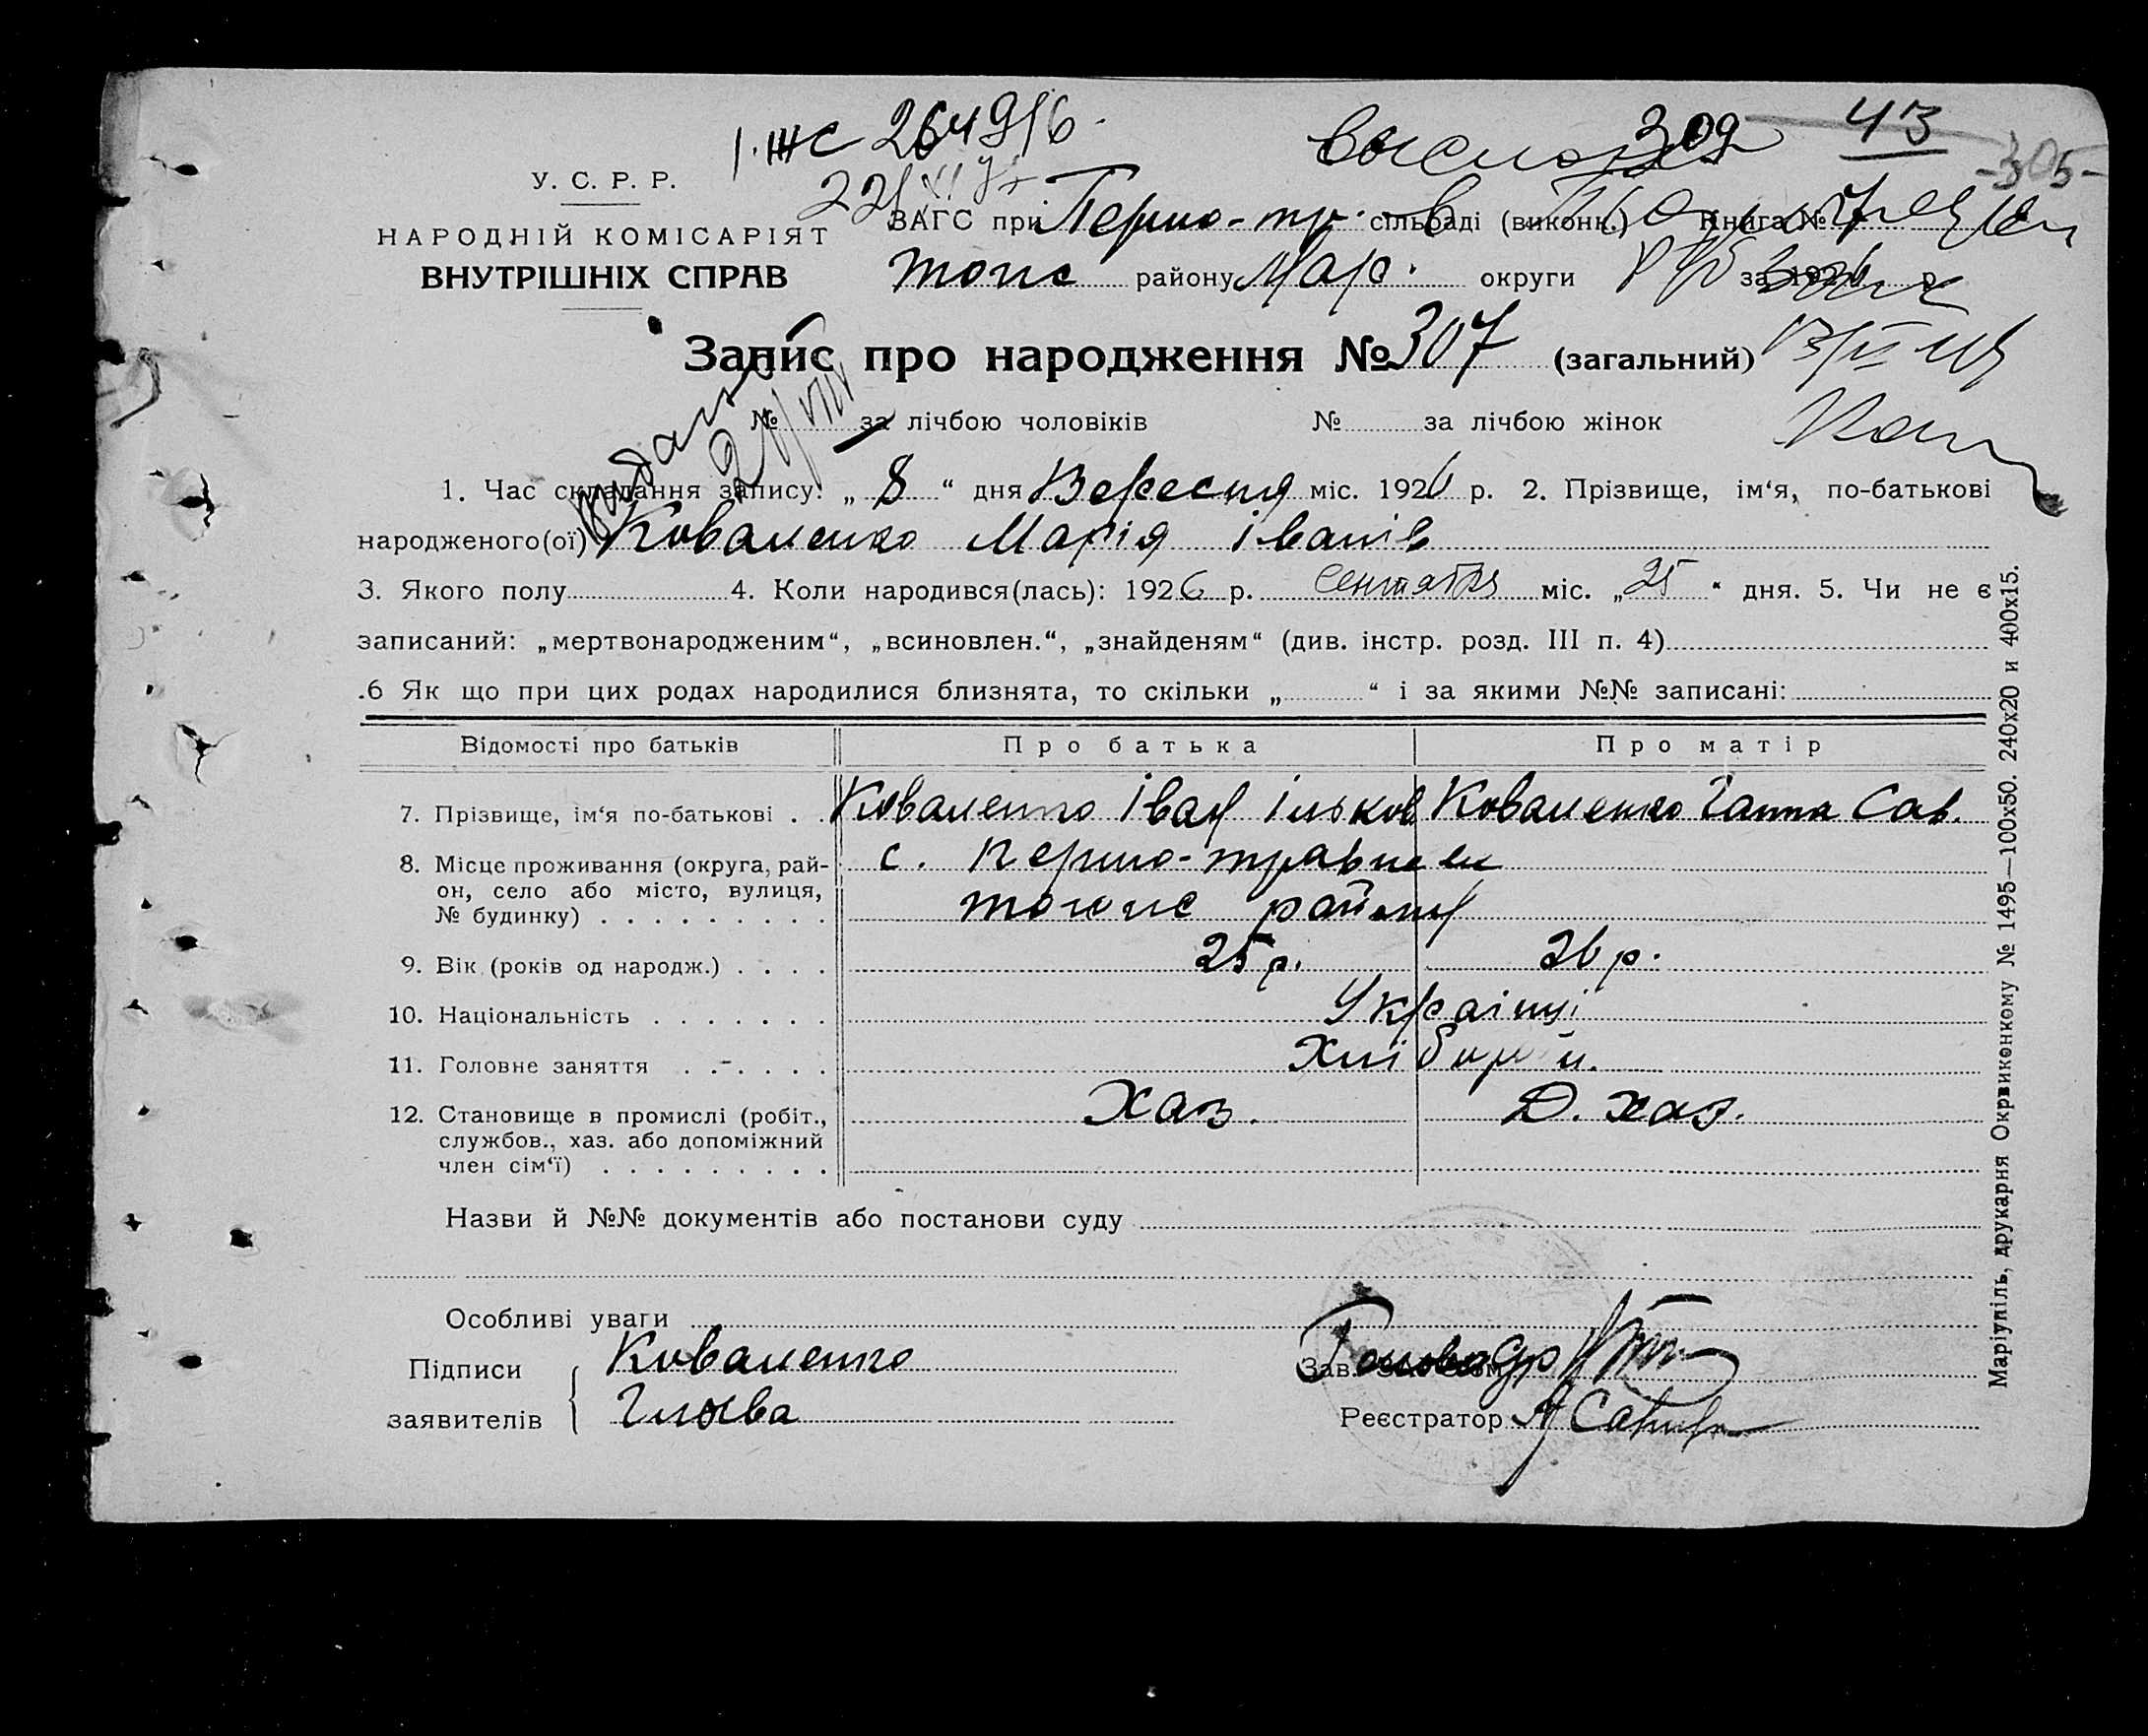 I. ЖС 264916 309 43
-305-
У. С. Р. Р.
НАРОДНІЙ КОМІСАРІЯТ
ВНУТРІШНІХ СПРАВ
ЗАГС при Першо-тр. сільраді (виконк.) Книга №
району Мар. округи за 1926 р.
Запис про народження № 307 (загальний)
№ за лічбою чоловіків № за лічбою жінок
1. Час складання запису: „ 8 “ дня Вересня міс. 1926 р. 2. Прізвище, ім‘я, по-батькові
народженого(ої) Коваленко Марія Іванів
3. Якого полу 4. Коли народився(лась): 1926 р. Сентября міс. „ 25 “ дня. 5. Чи не є
записаний: „мертвонародженим“, „всиновлен.“, „знайденям“ (див. інстр. розд. III п. 4)
.6 Як що при цих родах народилися близнята, то скільки „ “ і за якими №№ записані:
Відомості про батьків Про батька Про матір
7. Прізвище, ім‘я по-батькові . . Коваленко Іван Ільков Коваленко Ганна Сав.
8. Місце проживання (округа, рай- с. Першо-травнев
он, село або місто, вулиця,
№ будинку) . . . . . . . . . району
9. Вік (років од народж.) . . . . 25 р. 26 р.
10. Національність . . . . . . . Українці
11. Головне заняття . . . . . .
12. Становище в промислі (робіт., Хаз. Д. хаз.
службов., хаз. або допоміжний
член сім‘ї) . . . . . . . . .
Назви й №№ документів або постанови суду
Особливі уваги
Підписи Коваленко Зав.
заявителів Реєстратор
Маріупіль, друкарня Окрвиконкому № 1495—100х50. 240х20 и 400х15.